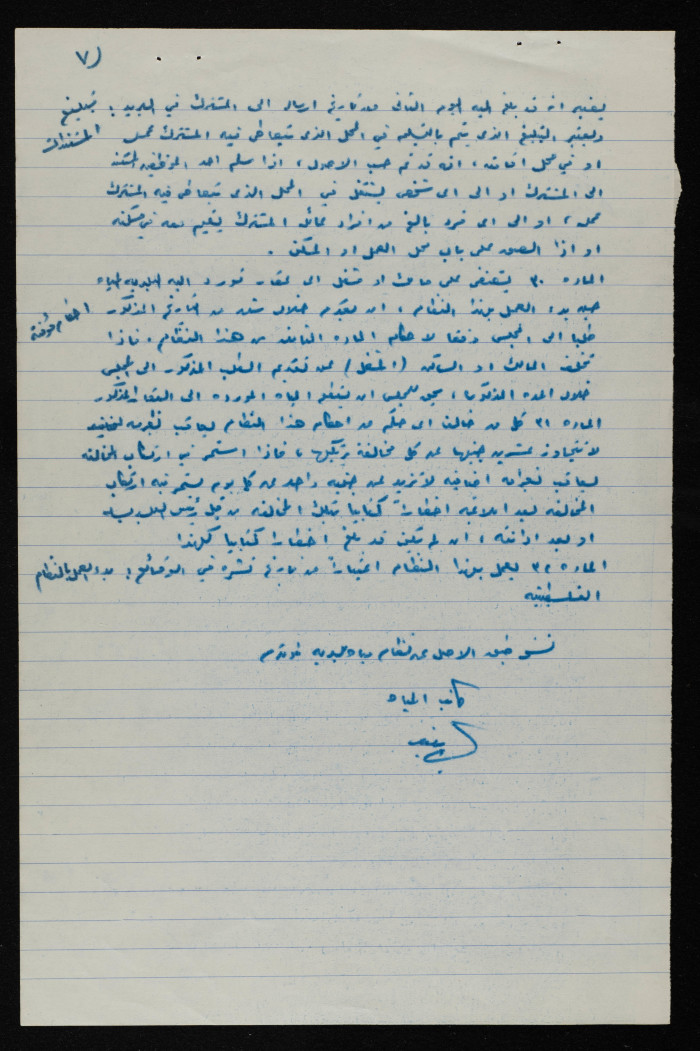 (٧
يعتبر انه قد بلغ اليه اليوم الثاني من تاريخ ارساله الى المشترك في البريد :
تبليغ المستندات
ويعتبر التبليغ الذي يتم بالتسليم في المحل الذي يتعاطى فيه المشترك عمله
او في محل اقامته ، انه قد تم حسب الاصول ، اذا سلم احد الموظفين المستند
الى المشترك او الى اى شخص يشتغل في المحل الذي يتعاطى فيه المشترك
عمله ، او الى اى فرد بالغ من افراد عائلة المشترك يقيم معه في مسكنه
او اذا الصق على باب محل العمل او المسكن .
الماده ٣٠ يقتضى على مالك او مشغل اى عقار تورد اليه البلديه المياه
حين بدء العمل بهذا النظام ، ان يقدم خلال سنه من التاريخ المذكور
احكام مؤقتة
طلبا الى المجلس وفقا لاحكام الماده الثالثه من هذا النظام ، فاذا
تخلف المالك او الساكن (المشغل) عن تقديم الطلب المذكور الى المجلس
خلال المده المذكوره ، يحق للمجلس ان يقطع المياه المورده الى العقار المذكور
الماده ٣١ كل من خالف اى حكم من احكام هذا النظام يعاقب بغرامه
لا تتجاوز عشرين جنيها عن كل مخالفة يرتكبها ، فاذا استمر في ارتكاب المخالفه
يعاقب بغرامه اضافيه لا تزيد عن جنيه واحد عن كل يوم يستمر فيه ارتكاب
المخالفه بعد ابلاغه اخطاراً كتابيا بتلك المخالفه من قبل رئيس البلديه
او بعد ادانته ، ان لم يكن قد بلغ اخطارا كتابيا كهذا
الماده ٣٢ يعمل بهذا النظام اعتباراً من تاريخ نشره في الوقائع :
بدء العمل بالنظام
الفلسطينيه
نسخ طبق الاصل عن نظام مياه بلديه
كاتب المياه